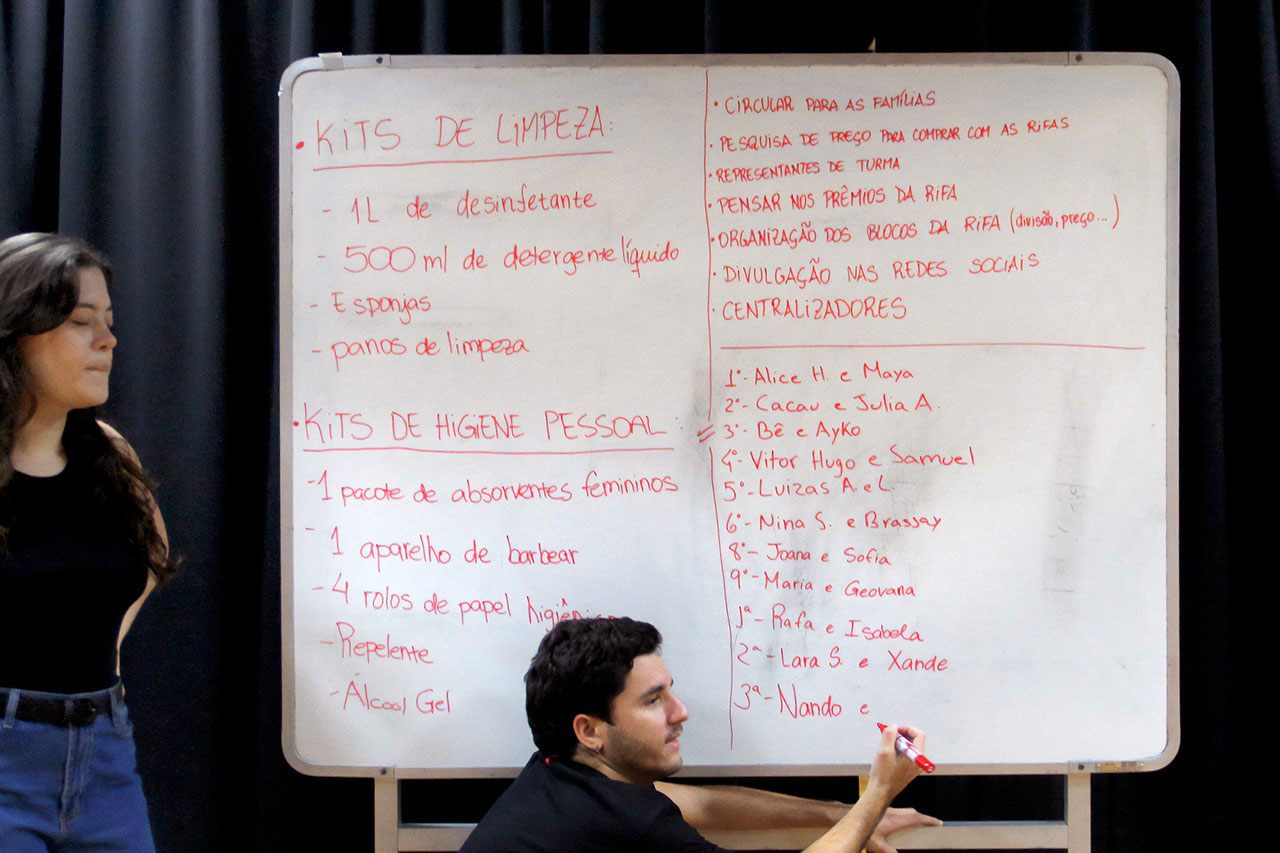 • KiTS DE LiMPEZA:
- 1L de desinfetante
- 500 ml de detergente líquido
- Esponjas
- panos de limpeza
• KiTS DE HiGiENE PESSOAL:
- 1 pacote de absorventes femininos
- 1 aparelho de barbear
- 4 rolos de papel
- Repelente
- Álcool Gel
• CiRCULAR PARA AS FAMÍLIAS
• PESQUISA DE PREÇO PARA COMPRAR COM AS RiFAS
• REPRESENTANTES DE TURMA
• PENSAR NOS PRÊMIOS DA RiFA
• ORGANIZAÇÃO DOS BLOCOS DA RiFA (divisão, preço...)
• DIVULGAÇÃO NAS REDES SOCIAIS
• CENTRALIZADORES
1º- Alice H. e Maya
2º- Cacau e Julia A.
3º- Bê e Ayko
4º- Vitor Hugo e Samuel
5º- Luizas A. e L.
6º- Nina S. e Brassay
8º- Joana e Sofia
9º- Maria e Geovana
1ª- Rafa e Isabela
2ª- Lara S. e Xande
3ª- Nando e